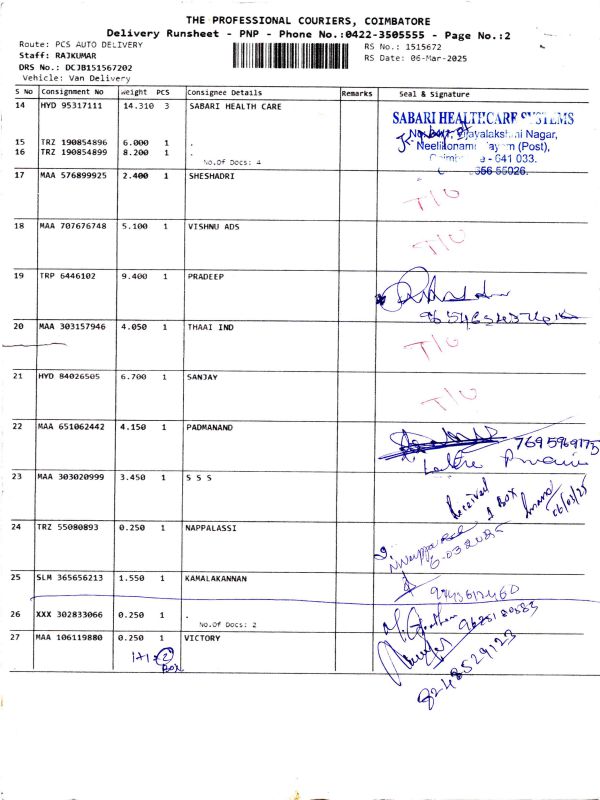 THE PROFESSIONAL COURIERS, COIMBATORE
Delivery Runsheet - PNP - Phone No.:0422-3505555 - Page No.:2
Route: PCS AUTO DELIVERY
RS No.: 1515672
Staff: RAJKUMAR
RS Date: 06-Mar-2025
DRS No.: DCJB151567202
Vehicle: Van Delivery
S No Consignment No Weight PCS Consignee Details Remarks Seal & Signature
14 HYD 95317111 14.310 3 SABARI HEALTH CARE
SABARI HEALTHCARE SYSTEMS
Nagar,
15 TRZ 190854896 6.000 1 .
(Post),
16 TRZ 190854899 8.200 1 .
- 641 033.
No.Of Docs: 4
656 55026.
17 MAA 576899925 2.400 1 SHESHADRI
T/O
18 MAA 707676748 5.100 1 VISHNU ADS
T/O
19 TRP 6446102 9.400 1 PRADEEP
20 MAA 303157946 4.050 1 THAAI IND
T/O
21 HYD 84026505 6.700 1 SANJAY
T/O
22 MAA 651062442 4.150 1 PADMANAND
7695969175
23 MAA 303020999 3.450 1 S S S
Received
1 BOX
06/03/25
24 TRZ 55080893 0.250 1 NAPPALASSI
25 SLM 365656213 1.550 1 KAMALAKANNAN
26 XXX 302833066 0.250 1 .
No.Of Docs: 2
9625180583
27 MAA 106119880 0.250 1 VICTORY
8248529123
1+1=2
BOX